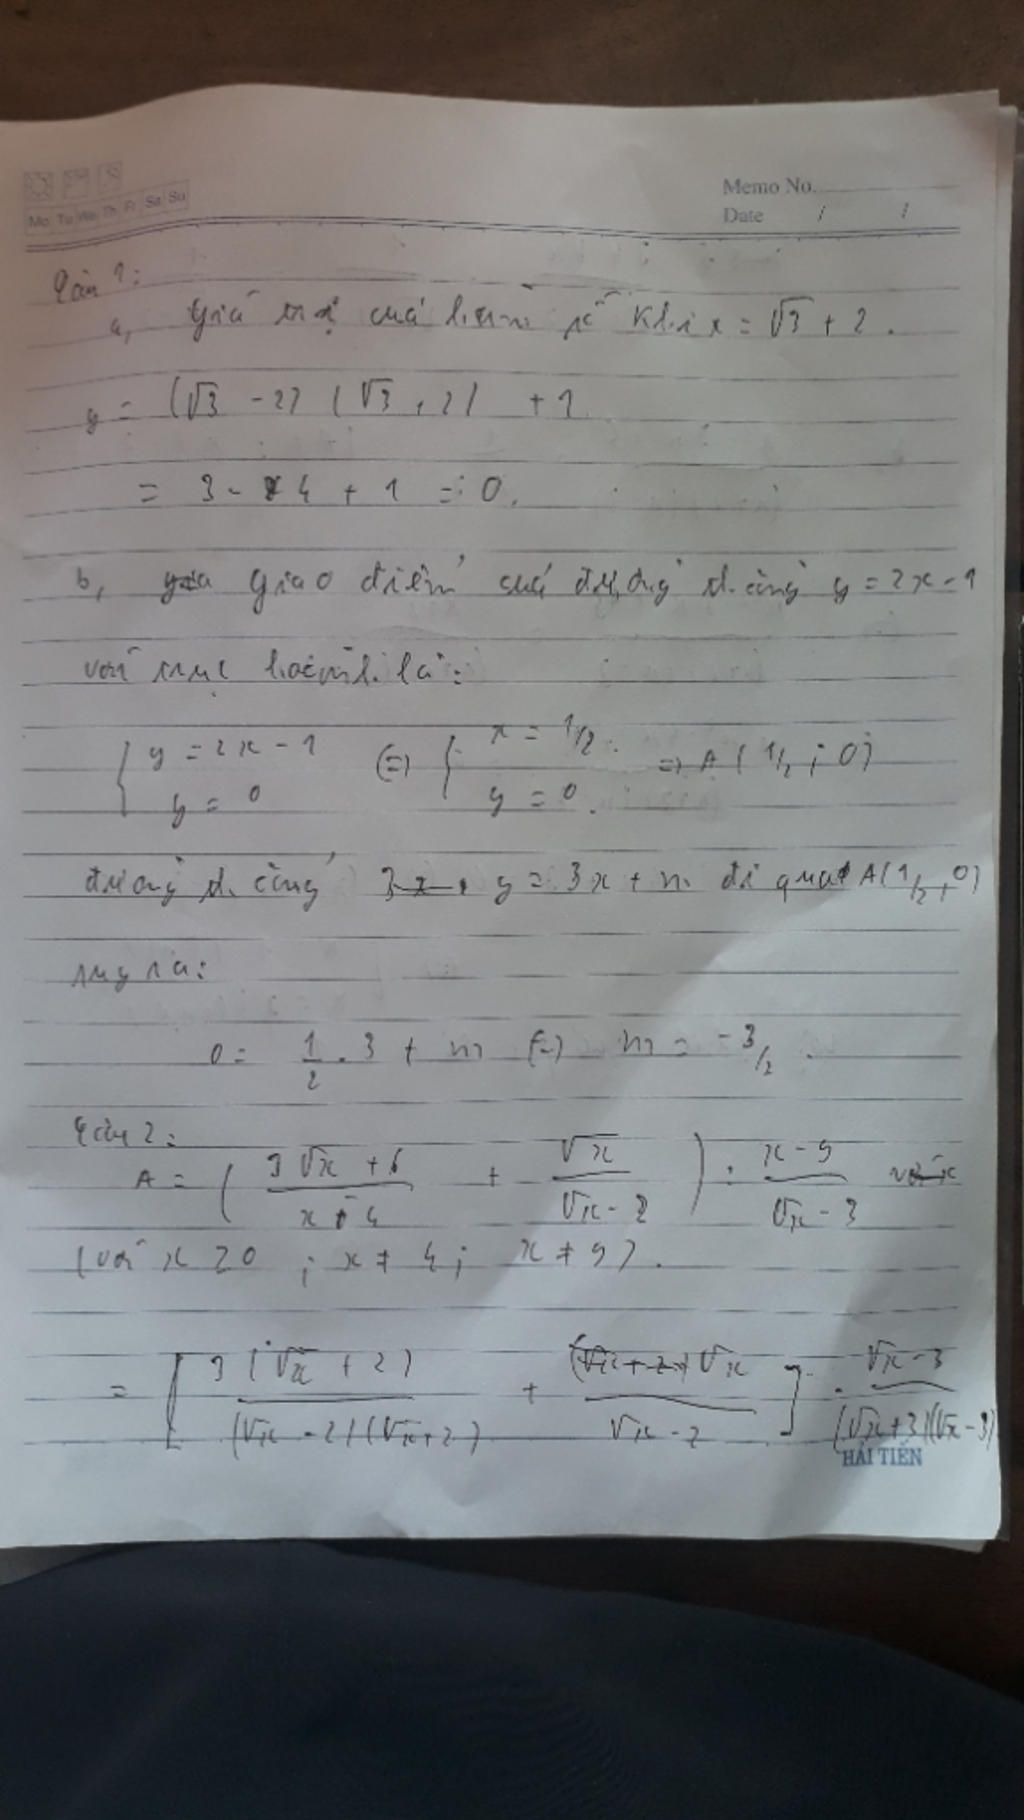 Mo Tu We Th Fr Sa Su
Memo No.
Date / /
Câu 1:
a, Giá trị của hàm số khi x = √3 + 2.
y = (√3 - 2) (√3 + 2) + 1
= 3 - 4 + 1 = 0.
b, giao điểm của đường thẳng y = 2x - 1
với trục hoành là:
{ y = 2x - 1 (=) { x = 1/2. => A (1/2 ; 0)
y = 0 y = 0.
đường thẳng y = 3x + m đi qua A(1/2, 0)
suy ra:
0 = 1/2 . 3 + m (=) m = -3/2.
Câu 2:
A = ( 3√x + 6 / x - 4 + √x / √x - 2 ) : x - 9 / √x - 3
(với x ≥ 0 ; x ≠ 4 ; x ≠ 9).
= [ 3 (√x + 2) / (√x - 2)(√x + 2) + √x / √x - 2 ] . √x - 3 / (√x + 3)(√x - 3)
HẢI TIẾN